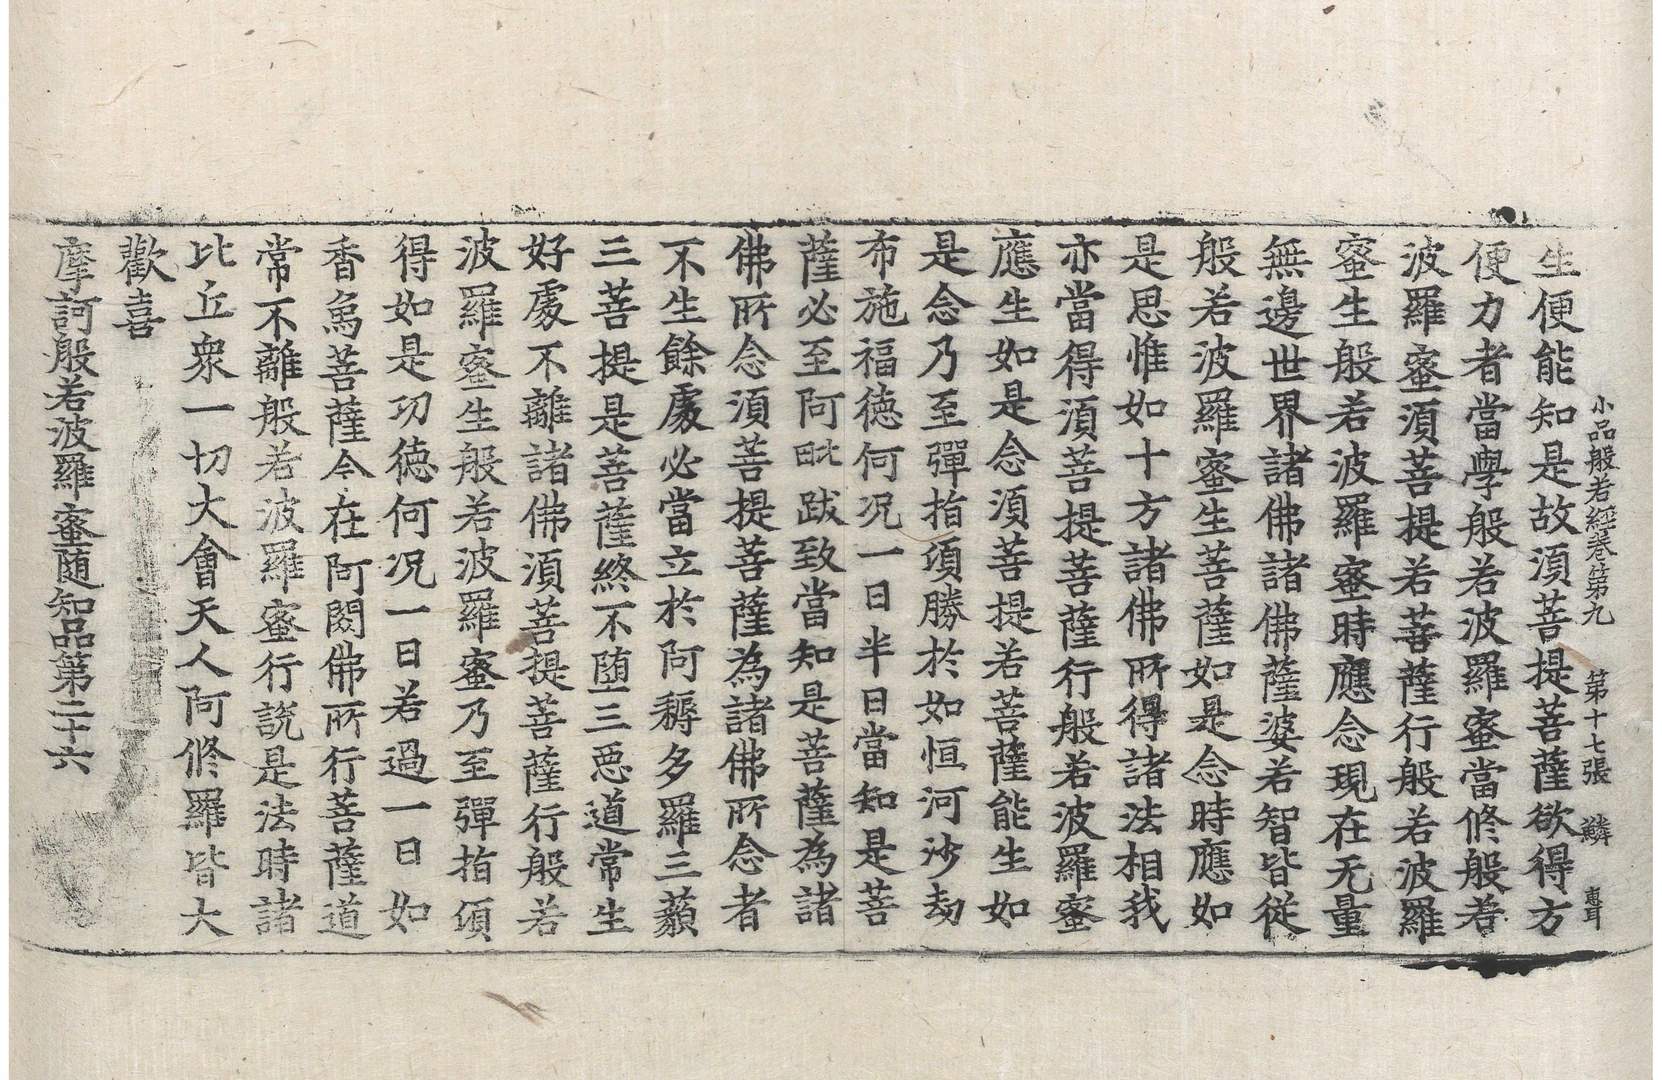 小品般若經卷第九 第十七張 鱗 惠耳
生便能知是故須菩提菩薩欲得方
便力者當學般若波羅蜜當修般若
波羅蜜須菩提若菩薩行般若波羅
蜜生般若波羅蜜時應念現在无量
無邊世界諸佛諸佛薩婆若智皆從
般若波羅蜜生菩薩如是念時應如
是思惟如十方諸佛所得諸法相我
亦當得須菩提菩薩行般若波羅蜜
應生如是念須菩提若菩薩能生如
是念乃至彈指頃勝於如恒河沙劫
布施福德何況一日半日當知是菩
薩必至阿毗跋致當知是菩薩為諸
佛所念須菩提菩薩為諸佛所念者
不生餘處必當立於阿耨多羅三藐
三菩提是菩薩終不墮三惡道常生
好處不離諸佛須菩提菩薩行般若
波羅蜜生般若波羅蜜乃至彈指頃
得如是功德何況一日若過一日如
香象菩薩今在阿閦佛所行菩薩道
常不離般若波羅蜜行說是法時諸
比丘眾一切大會天人阿修羅皆大
歡喜
摩訶般若波羅蜜隨知品第二十六